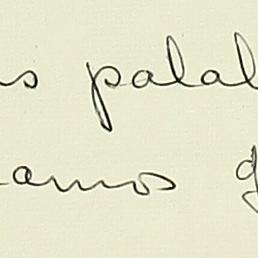 s palab
amos g